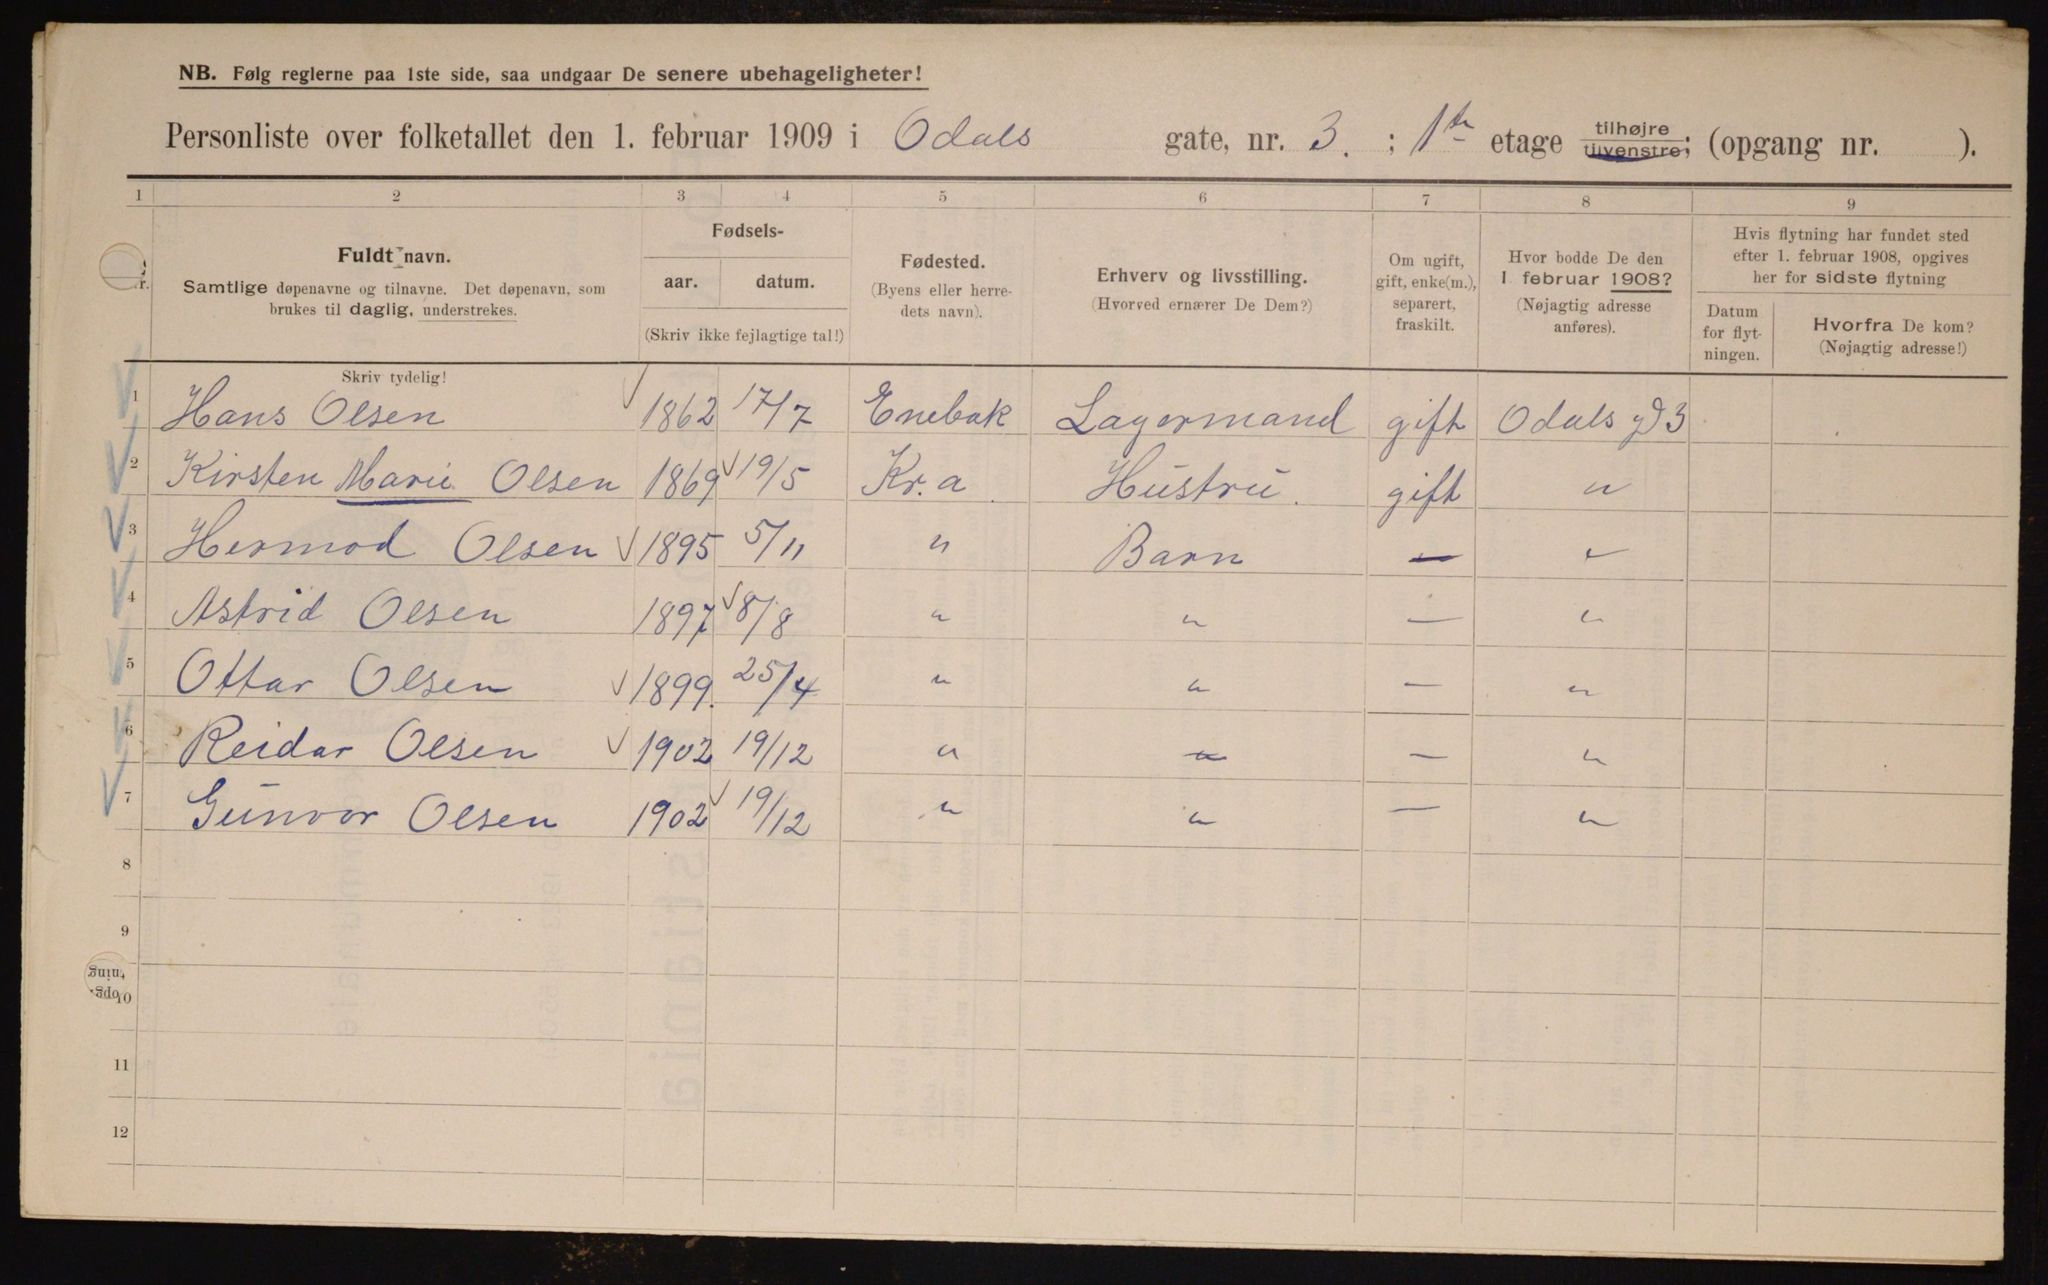 NB. Følg reglerne paa 1ste side, saa undgaar De senere ubehageligheter!
Personliste over folketallet den 1. februar 1909 i Odals gate, nr. 3. ; 1ste etage tilhøjre tilvenstre; (opgang nr. ).
1 2 3 4 5 6 7 8 9
Fuldt navn.
Samtlige døpenavne og tilnavne. Det døpenavn, som
brukes til daglig, understrekes.
Fødsels-
aar. datum.
(Skriv ikke fejlagtige tal!)
Fødested.
(Byens eller herre-
dets navn).
Erhverv og livsstilling.
(Hvorved ernærer De Dem?)
Om ugift,
gift, enke(m.),
separert,
fraskilt.
Hvor bodde De den
1 februar 1908?
(Nøjagtig adresse
anføres).
Hvis flytning har fundet sted
efter 1. februar 1908, opgives
her for sidste flytning
Datum
for flyt-
ningen.
Hvorfra De kom?
(Nøjagtig adresse!)
Skriv tydelig!
1 Hans Olsen 1862 17/7 Enebak Lagermand gift Odals gd 3
2 Kirsten Marie Olsen 1869 19/5 Kr.a Hustru. gift "
3 Hermod Olsen 1895 5/11 " Barn — "
4 Astrid Olsen 1897 8/8 " " — "
5 Ottar Olsen 1899. 25/4 " " — "
6 Reidar Olsen 1902 19/12 " " — "
7 Gunvor Olsen 1902 19/12 " " — "
8
9
10
11
12